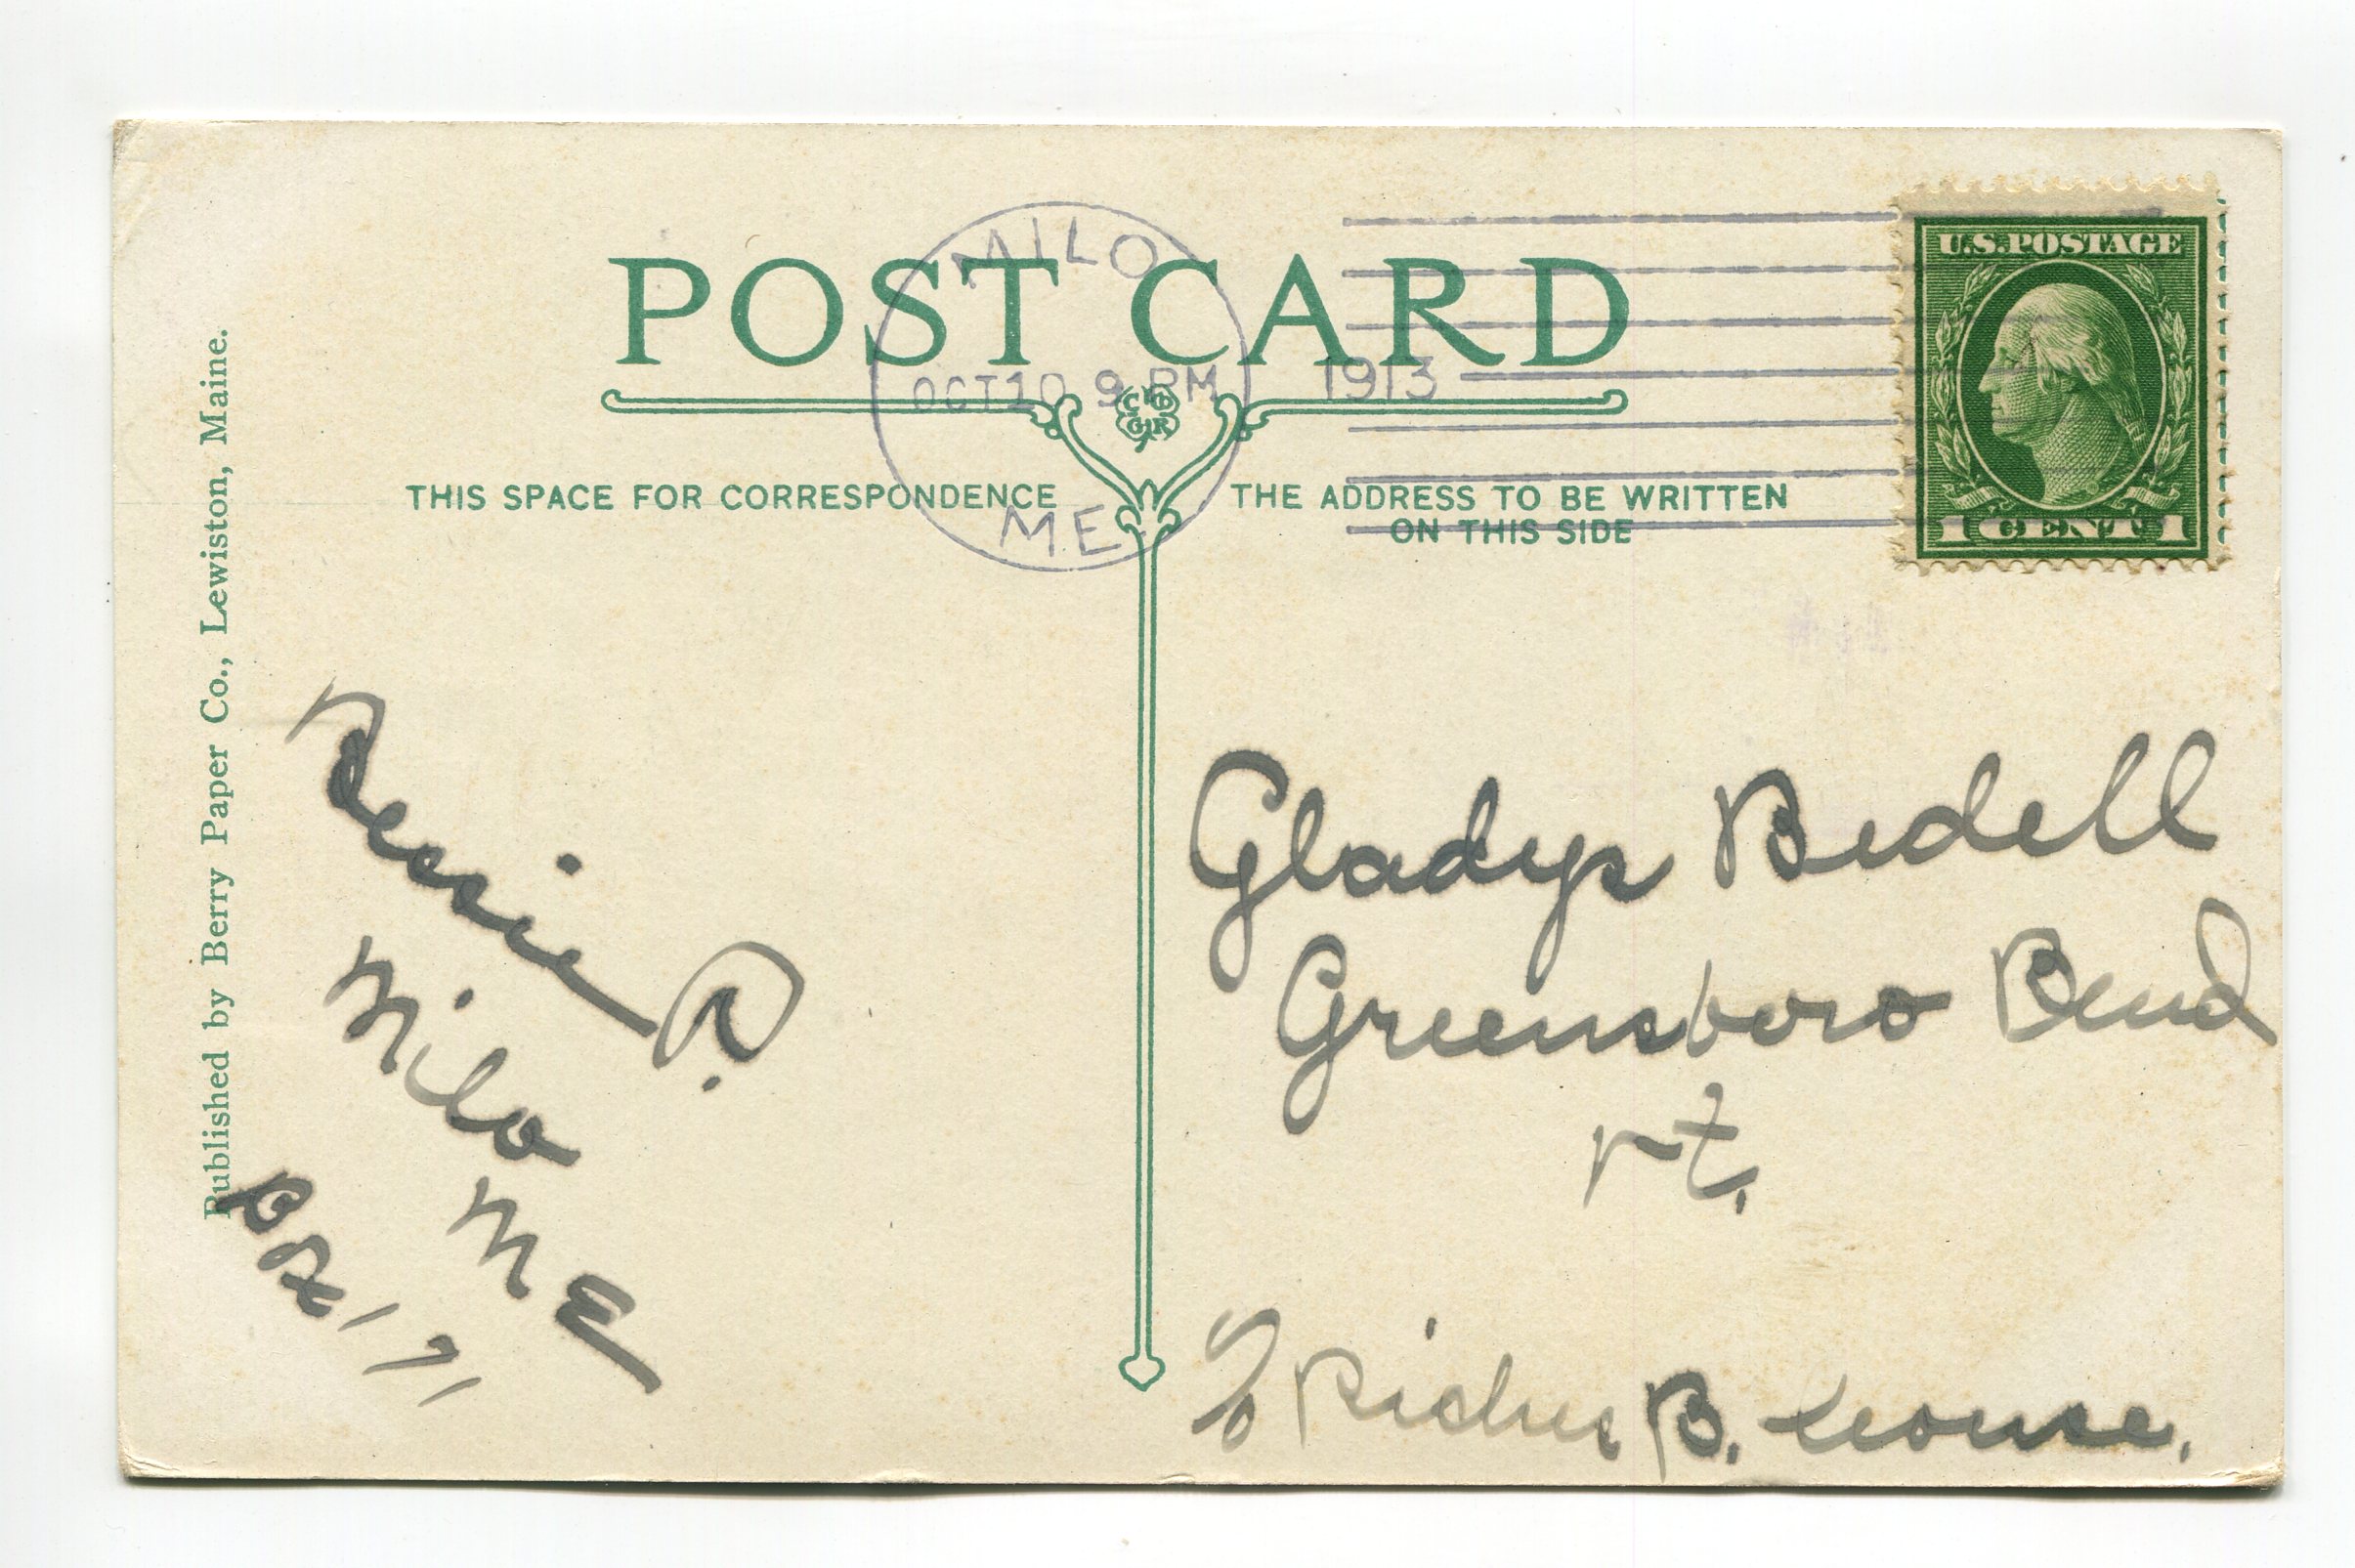 POST CARD
MILO
OCT 10 9 PM 1913
ME.
THIS SPACE FOR CORRESPONDENCE
THE ADDRESS TO BE WRITTEN
ON THIS SIDE
U.S. POSTAGE
1 CENT 1
Published by Berry Paper Co., Lewiston, Maine.
Bessie
Milo
ME
Gladys Bedell
Greensboro Bend
Vt.
B.